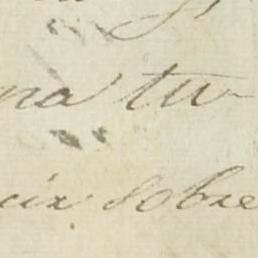 na tu
cia sobre